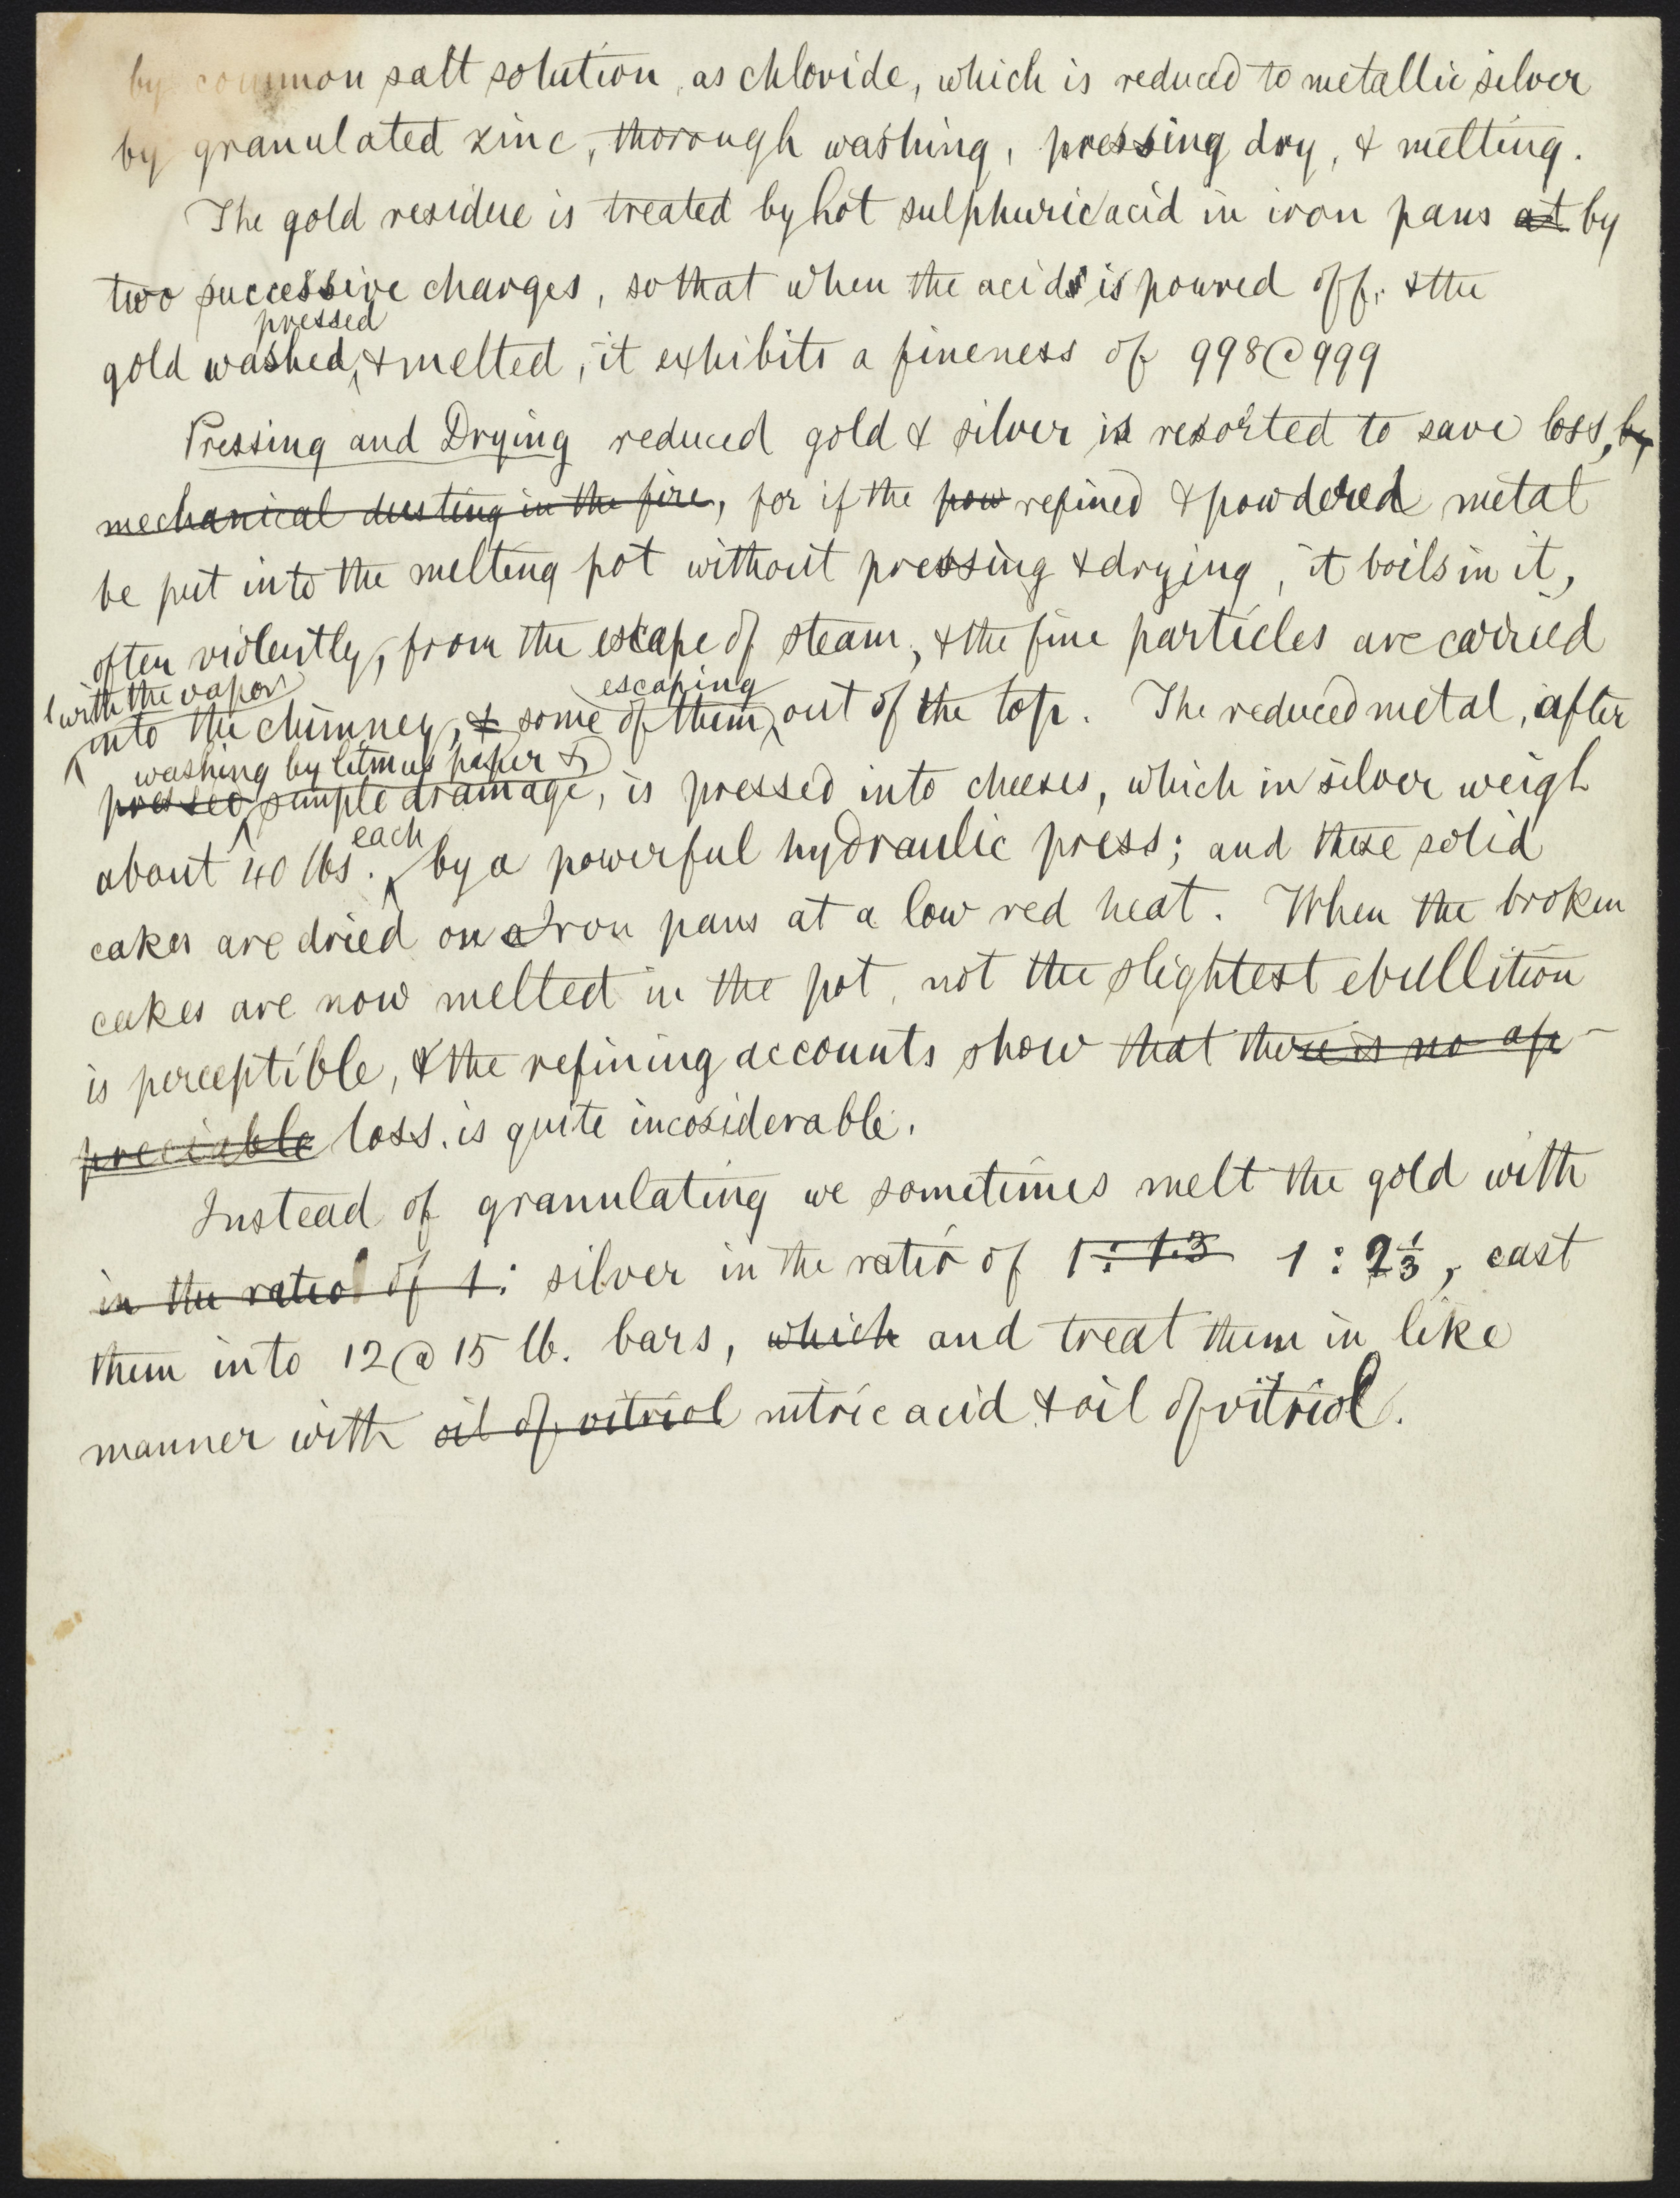 by common salt solution, as chloride, which is reduced to metallic silver
by granulated zinc, thorough washing, pressing dry, & melting.
The gold residue is treated by hot sulphuric acid in iron pans at by
two successive charges, so that when the acids is poured off, & the
pressed
gold washed, & melted, it exhibits a fineness of 998@999
Pressing and Drying reduced gold & silver is resorted to save loss, by
mechanical dusting in the fire, for if the pow refined & powdered metal
be put into the melting pot without pressing & drying, it boils in it,
often violently, from the escape of steam, & the fine particles are carried
with the vapor escaping
into the chimney, & some of them out of the top. The reduced metal, after
washing by litmus paper &
pressed simple drainage, is pressed into cheeses, which in silver weigh
each
about 40 lbs. by a powerful hydraulic press; and these solid
cakes are dried on a Iron pans at a low red heat. When the broken
cakes are now melted in the pot, not the slightest ebullition
is perceptible, & the refining accounts show that there is no ap-
preciable loss. is quite incosiderable.
Instead of granulating we sometimes melt the gold with
in the ratio of 1: silver in the ratio of 1:1.3 1:2⅓, cast
them into 12@15 lb. bars, which and treat them in like
manner with oil of vitriol nitric acid & oil of vitriol.